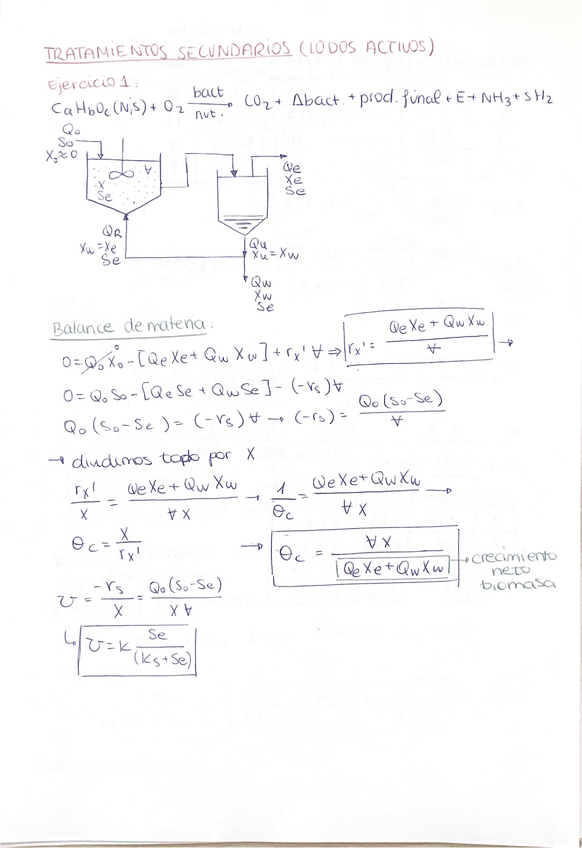 TRATAMIENTOS SECUNDARIOS (LODOS ACTIVOS)
Ejercicio 1:
CaHbOc(N,S) + O2 bact/nut. → CO2 + Δbact. + prod. final + E + NH3 + SH2
Q0
S0
X0≈0
∀
X
Se
Qe
Xe
Se
QR
Xu = Xe
Se
Qu
Xu = Xw
Qw
Xw
Se
Balance de materia:
0 = Q0 X0 - [Qe Xe + Qw Xw] + rx' ∀ ⇒ rx' = (Qe Xe + Qw Xw) / ∀ →
0 = Q0 S0 - [Qe Se + Qw Se] - (-rs) ∀
Q0 (S0 - Se) = (-rs) ∀ → (-rs) = Q0 (S0 - Se) / ∀
→ dividimos todo por X
rx' / X = (Qe Xe + Qw Xw) / ∀ X → 1 / θc = (Qe Xe + Qw Xw) / ∀ X →
θc = X / rx' → θc = ∀ X / (Qe Xe + Qw Xw) → crecimiento
neto
biomasa
U = -rs / X = Q0 (S0 - Se) / X ∀
↳ U = K Se / (Ks + Se)